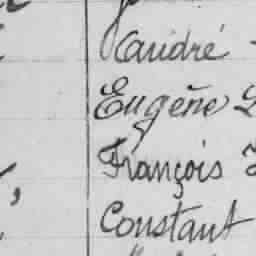 André
Eugène
François
Constant